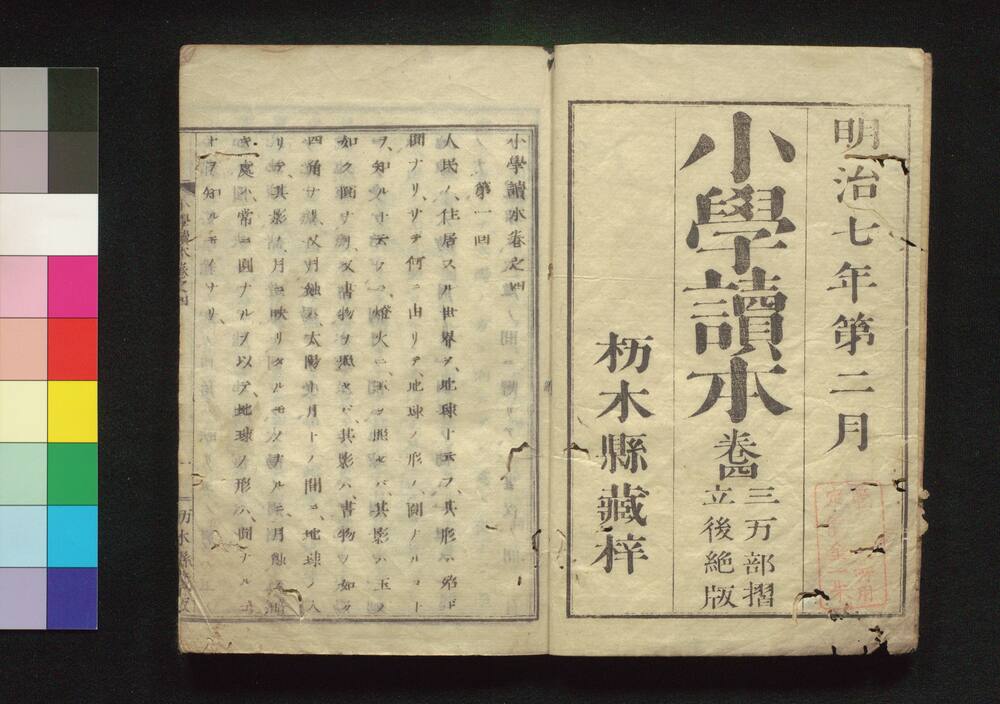 明治七年第二月
小學讀本
巻四
三万部摺
立後絶版
栃木縣藏梓
小學讀本巻之四
第一回
人民ノ、住居スル世界ヲ、地球ト云フ、其形ハ、殆ド
圓ナリ、サテ何ニ由リテ、地球ノ形ノ、圓ナルコト
ヲ、知ルト云フニ、燈火ニ、玉ヲ照セバ、其影ハ、玉ノ
如ク圓ナリ、又書物ヲ照セバ、其影ハ、書物ノ如ク
四角ナリ、月蝕ハ、太陽ト月トノ間ニ、地球ノ入
リテ、其影ノ、月ニ映リタルモノナル、月蝕
處ハ、常ニ圓ナルヲ以テ、地球ノ形ハ、圓ナル
ヲ知ルベキナリ、
小學讀本巻之四